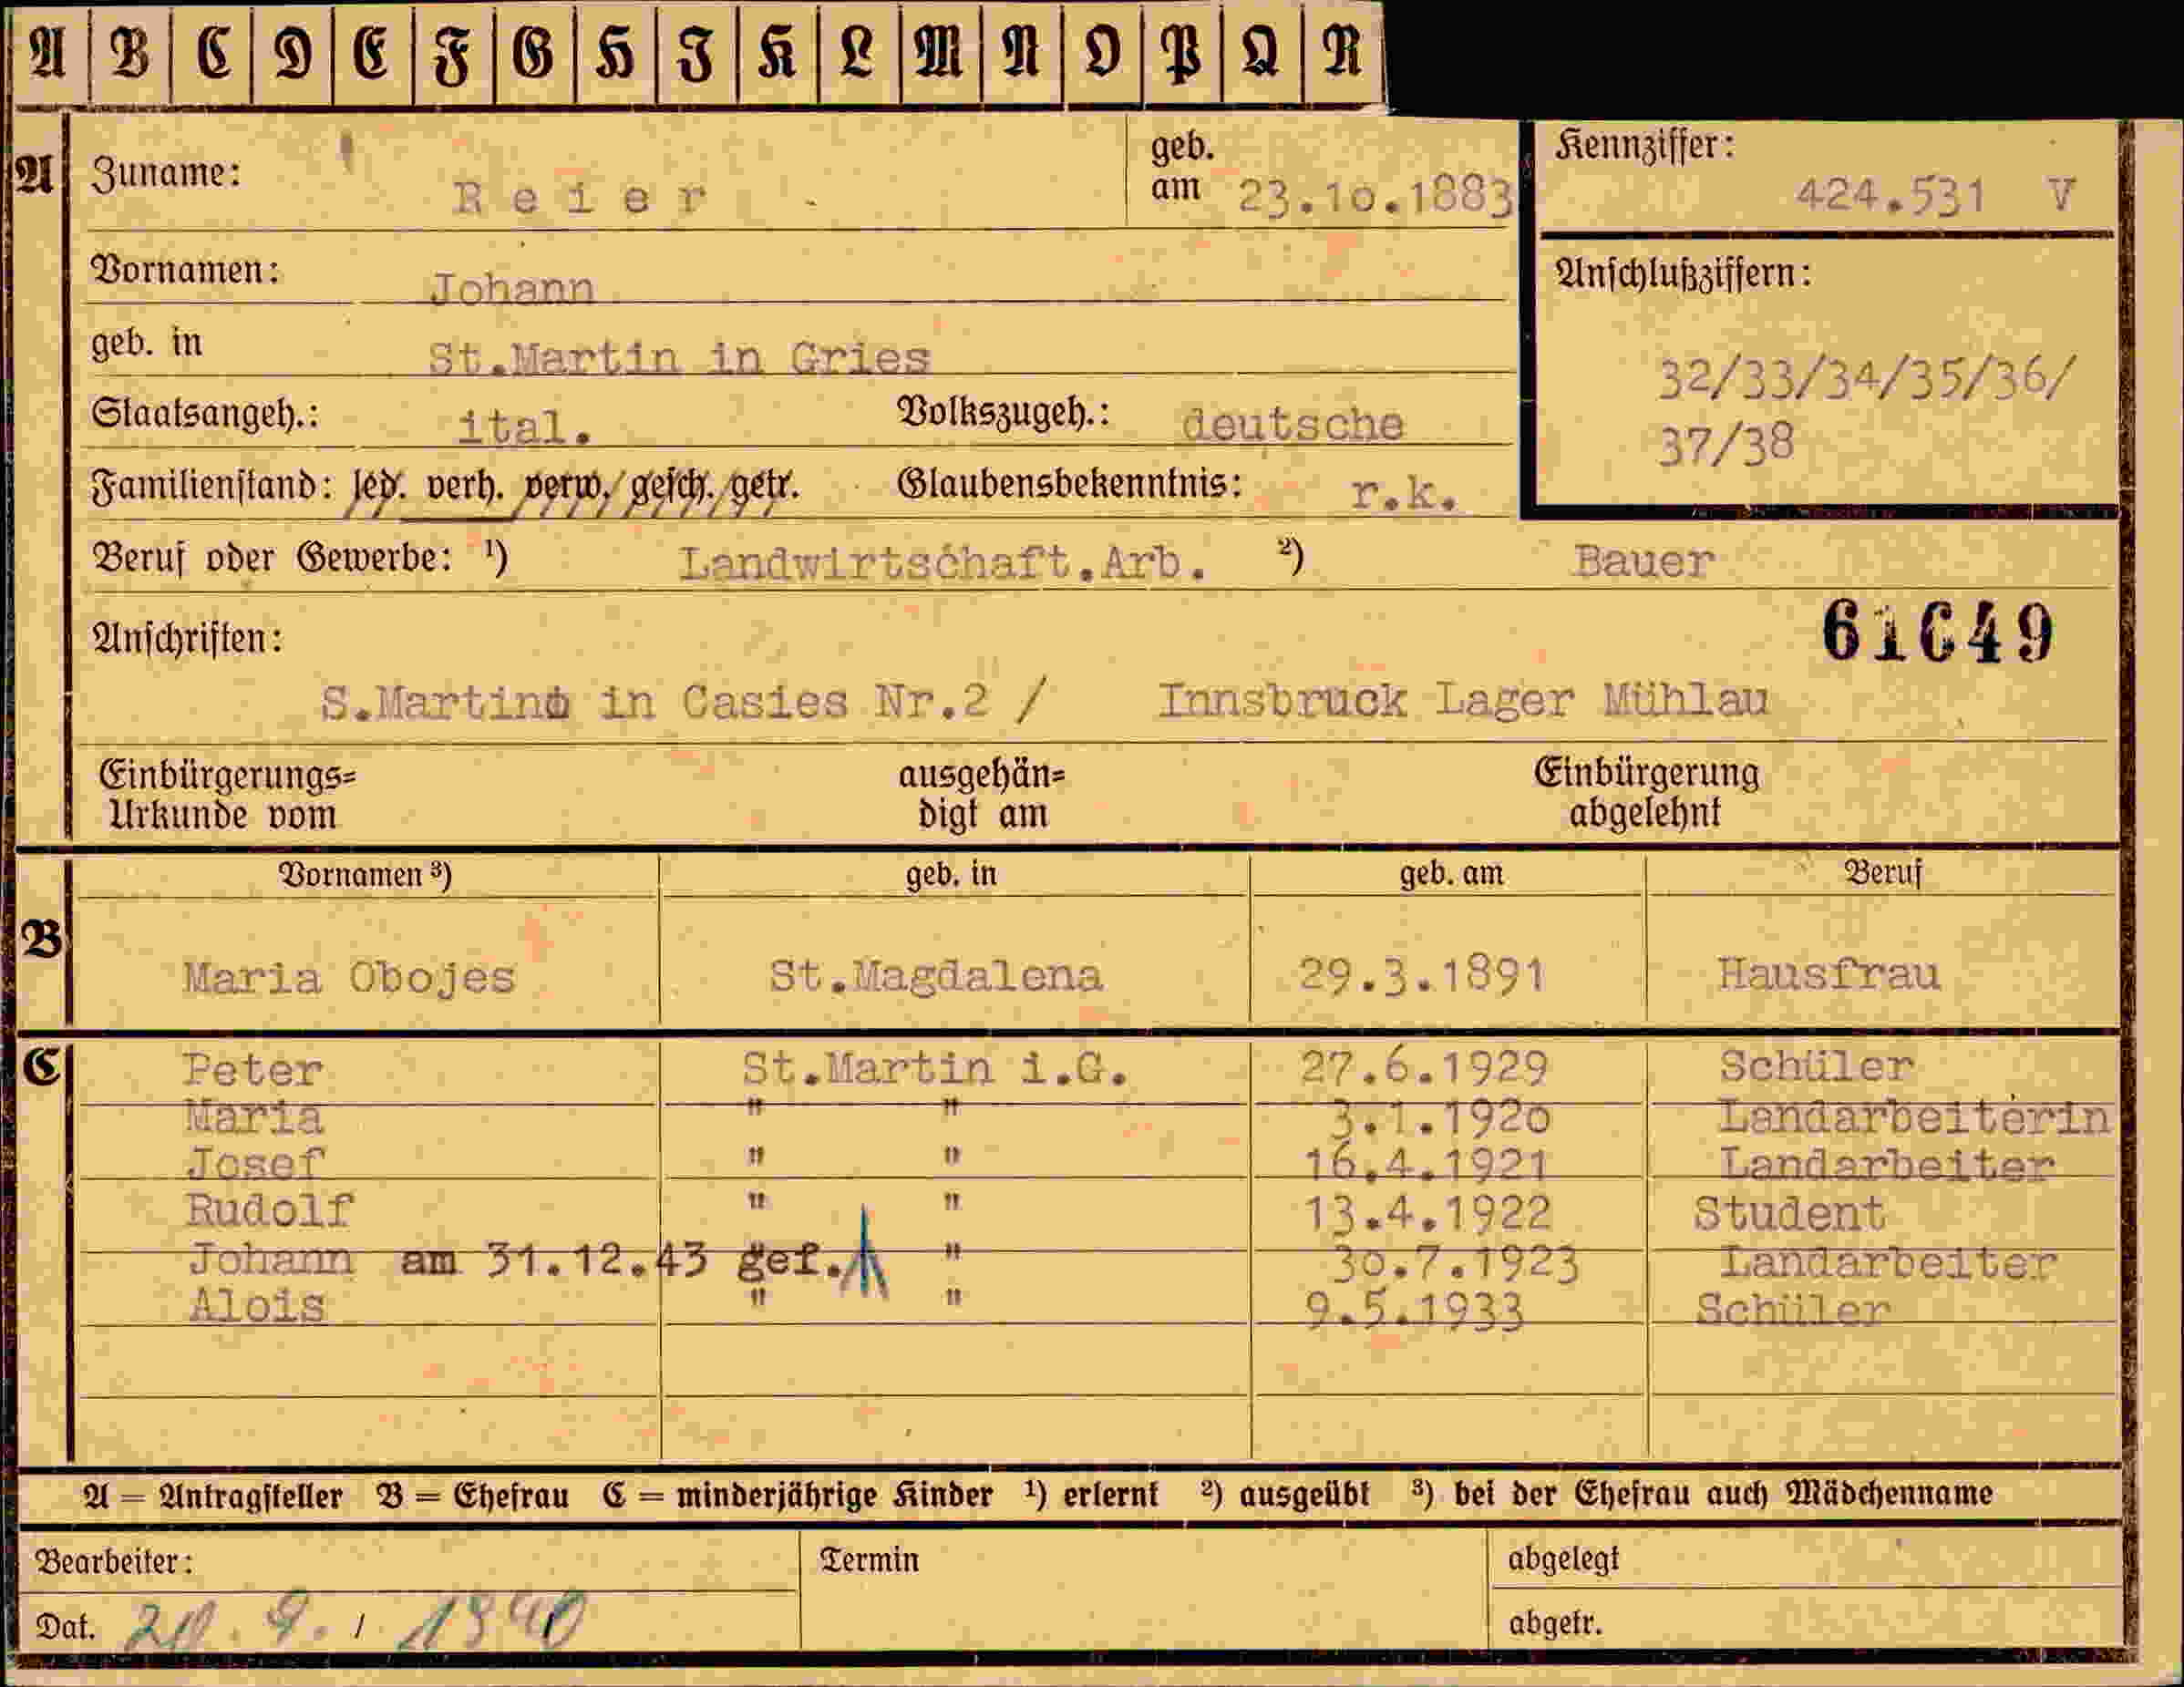 A B C D E F G H I K L M N O P Q R
A Zuname: Reier geb. am 23.10.1883
Kennziffer: 424.531 V
Vornamen: Johann
Anschlußziffern:
geb. in St.Martin in Gries
32/33/34/35/36/
Staatsangeh.: ital. Volkszugeh.: deutsche
37/38
Familienstand: led. verh. verw. gesch. getr. Glaubensbekenntnis: r.k.
Beruf oder Gewerbe: ¹) Landwirtschaft.Arb. ²) Bauer
Anschriften:
S.Martino in Casies Nr.2 / Innsbruck Lager Mühlau
Einbürgerungs= ausgehän= Einbürgerung
Urkunde vom digt am abgelehnt
Vornamen ³) geb. in geb. am Beruf
B Maria Obojes St.Magdalena 29.3.1891 Hausfrau
C Peter St.Martin i.G. 27.6.1929 Schüler
Maria " " 3.1.1920 Landarbeiterin
Josef " " 16.4.1921 Landarbeiter
Rudolf " " 13.4.1922 Student
Johann am 31.12.43 gef. " 30.7.1923 Landarbeiter
Alois " " 9.5.1933 Schüler
A = Antragsteller B = Ehefrau C = minderjährige Kinder ¹) erlernt ²) ausgeübt ³) bei der Ehefrau auch Mädchenname
Bearbeiter: Termin abgelegt
Dat. 9. / 1940 abgetr.